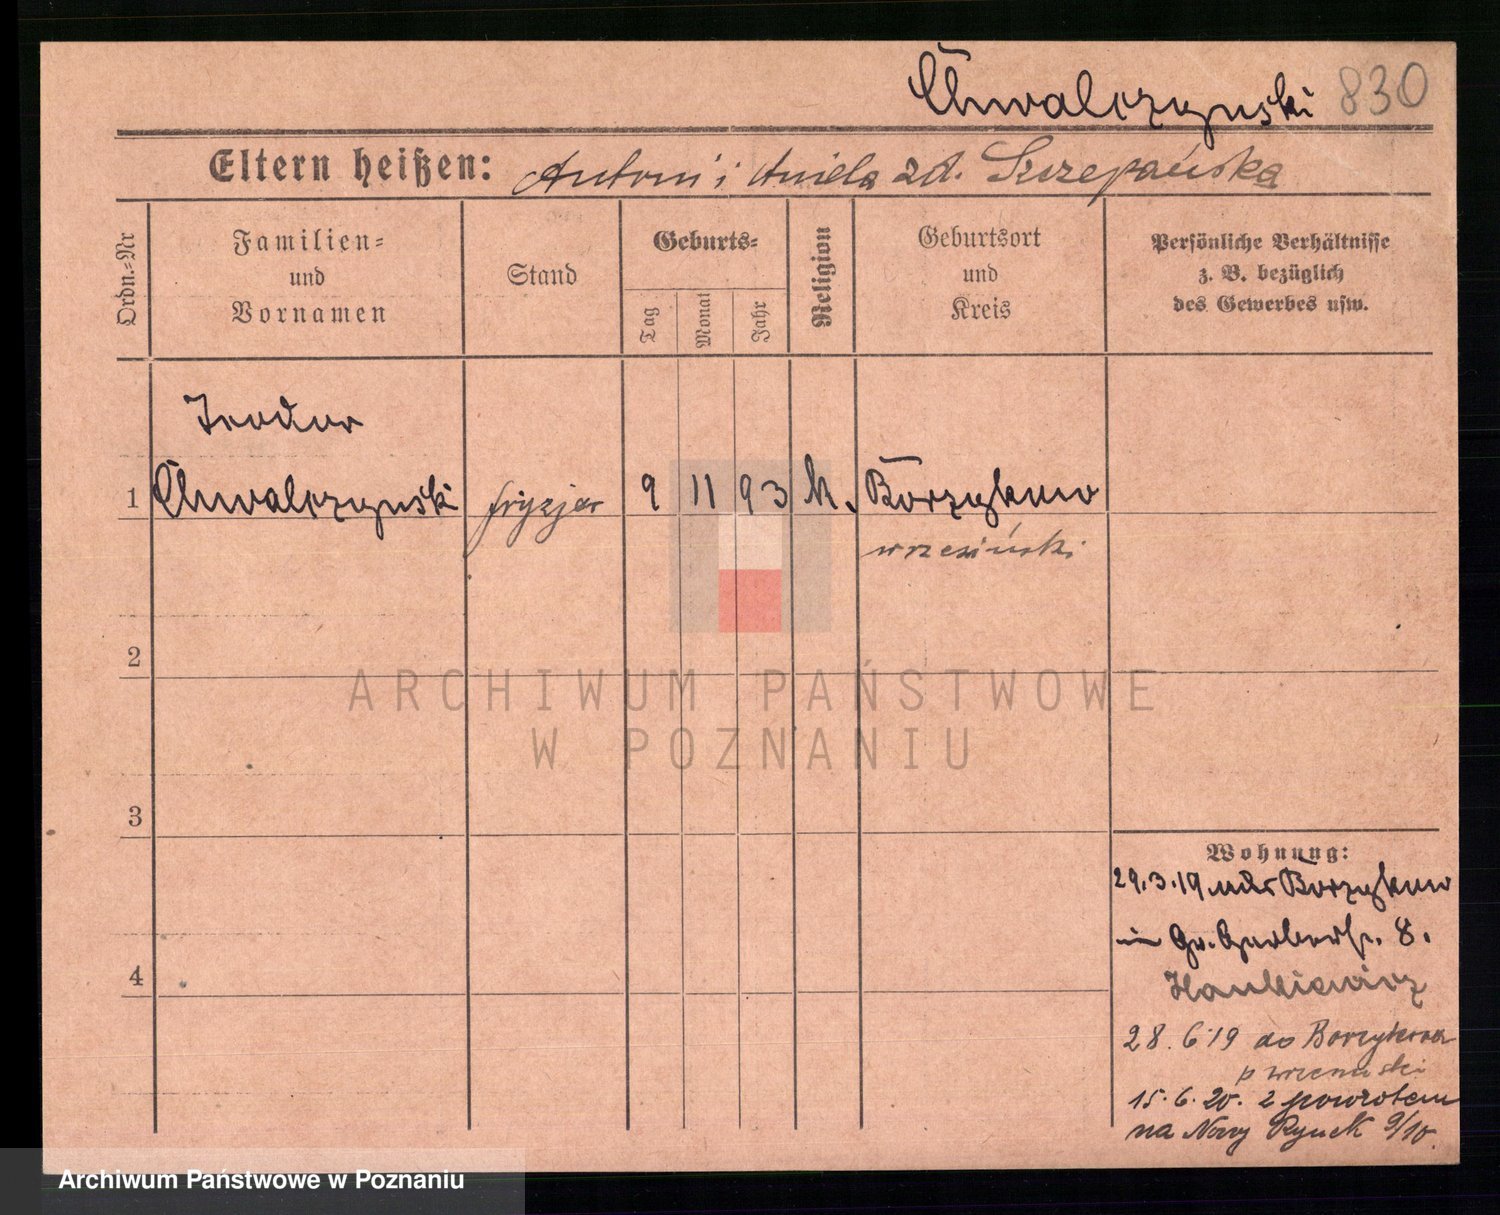 Chwalczynski 830
Eltern heißen: Antoni i Aniela zd. Szczepańska
Ordn.-Nr
Familien-
und
Vornamen
Stand
Geburts-
Tag
Monat
Jahr
Religion
Geburtsort
und
Kreis
Persönliche Verhältnisse
z. B. bezüglich
des Gewerbes usw.
Teodor
1 Chwalczynski fryzjer 9 11 93 k. Borzykowo
wrzesiński
2
3
4
Wohnung:
29.3.19 aus Borzykowo
in Gr. Gerberstr. 8.
28.6.19 do Borzykowa
p wrzesinski
15.6.20. z powrotem
na Nowy Rynek 9/10.
ARCHIWUM PAŃSTWOWE
W POZNANIU
Archiwum Państwowe w Poznaniu